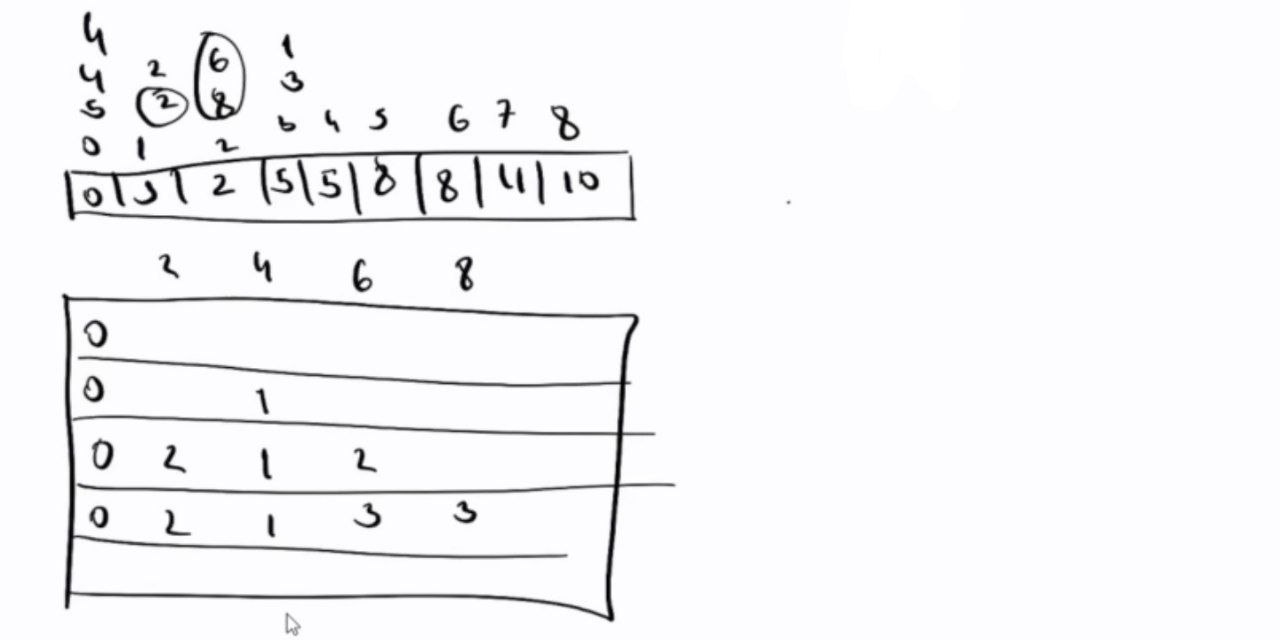 4
4 2 6 1
5 2 8 3
0 1 2 4 5 6 7 8
0 2 5 5 8 8 10
2 4 6 8
0
0 1
0 2 1 2
0 2 1 3 3